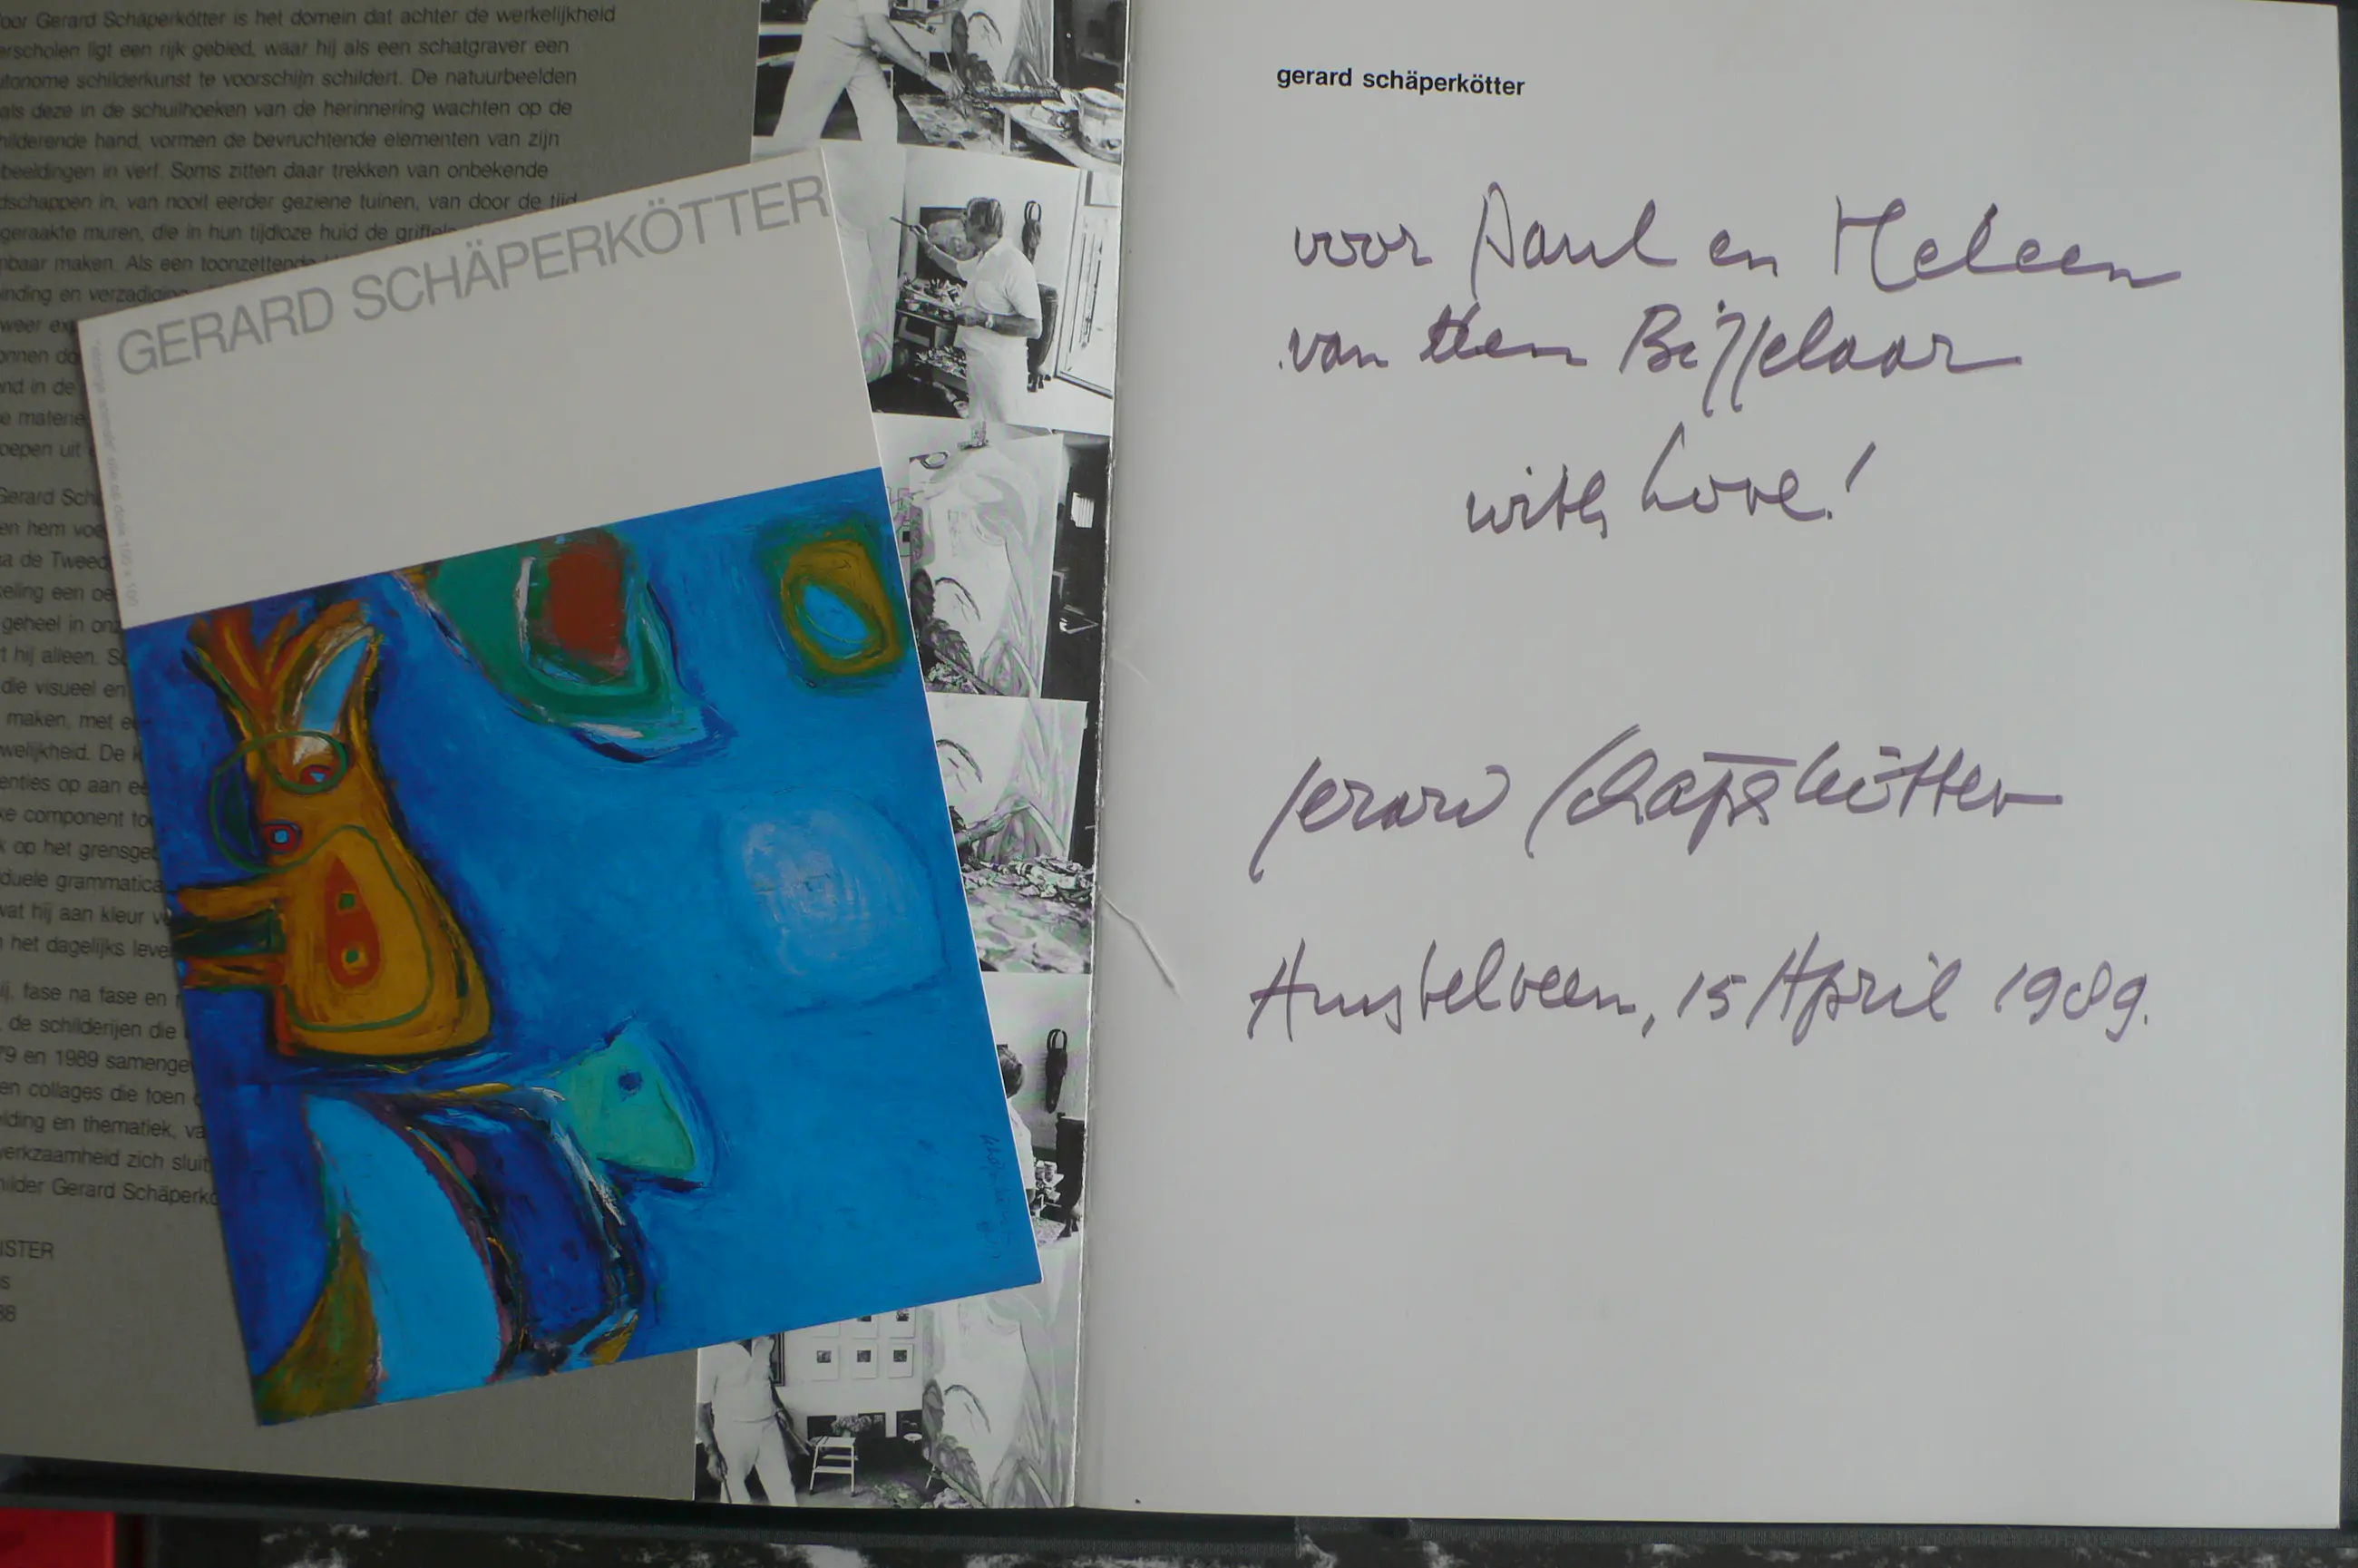 oor Gerard Schäperkötter is het domein dat achter de werkelijkheid
erscholen ligt een rijk gebied, waar hij als een schatgraver een
utonome schilderkunst te voorschijn schildert. De natuurbeelden
als deze in de schuilhoeken van de herinnering wachten op de
hilderende hand, vormen de bevruchtende elementen van zijn
beeldingen in verf. Soms zitten daar trekken van onbekende
dschappen in, van nooit eerder geziene tuinen, van door de tijd
geraakte muren, die in hun tijdloze huid de griffels
nbaar maken. Als een toonzettende
inding en verzadiging
weer ex
onnen do
end in de
e materie
oepen uit
Gerard Sch
en hem voe
na de Tweed
keling een oe
geheel in onz
t hij alleen. S
die visueel en
maken, met e
welijkheid. De k
enties op aan e
ke component to
k op het grensge
duele grammatica
wat hij aan kleur v
n het dagelijks leve
ij, fase na fase en
de schilderijen die
79 en 1989 samenge
en collages die toen
elding en thematiek, va
werkzaamheid zich sluit
hilder Gerard Schäperkö
ISTER
s
88
GERARD SCHÄPERKÖTTER
gerard schäperkötter
voor Paul en Heleen
van den Bijllelaar
with Love!
Gerard Schäperkötter
Amstelveen, 15 April 1989.